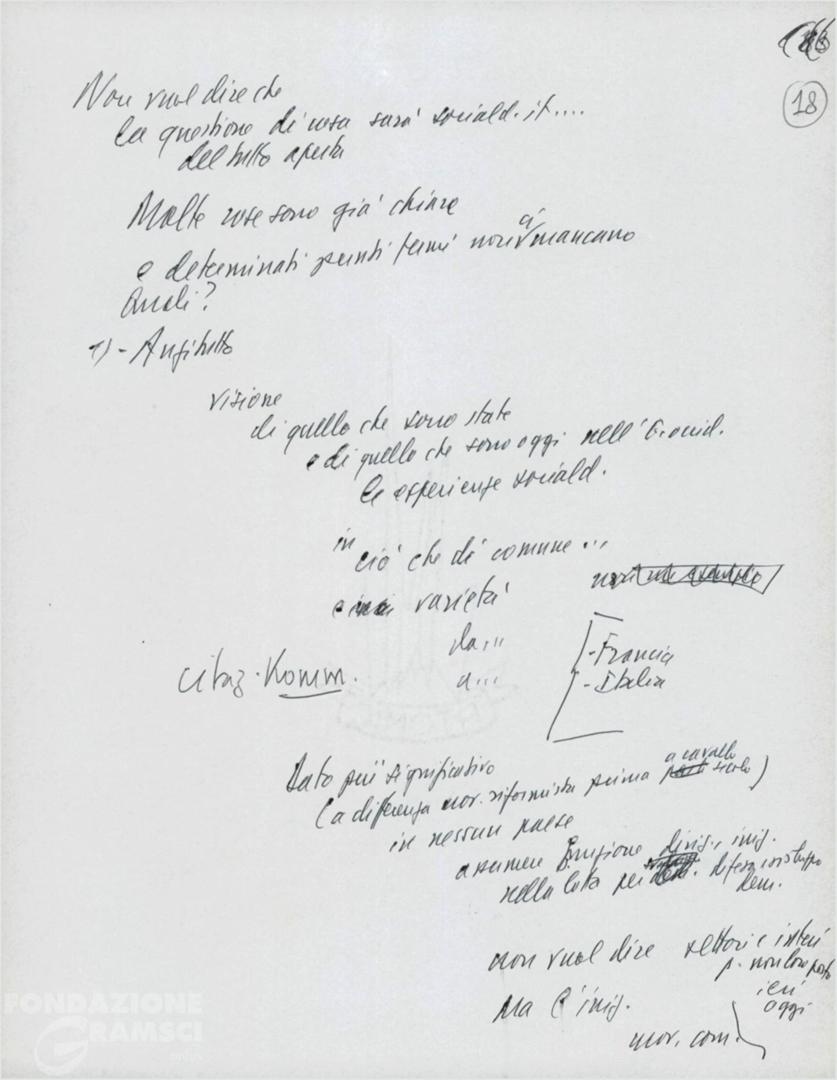 18
Non vuol dire che
la questione di cosa sarà sociald. it....
del tutto aperta
Molte cose sono già chiare
e determinati punti fermi non ci mancano
Quali?
1) - Anzitutto
visione
di quello che sono state
e di quello che sono oggi nell'Occid.
le esperienze sociald.
in ciò che di comune...
e in varietà
non
da...
a...
- Francia
- Italia
citaz. Komm.
Dato più significativo
(a differenza mov. riformista prima a cavallo secolo)
in nessun paese
assumere funzione dirig. iniz.
nella lotta per difesa sviluppo
dem.
non vuol dire settori e interi
p. non loro posto
ieri
oggi
Ma l'iniz.
mov. com.
FONDAZIONE
GRAMSCI